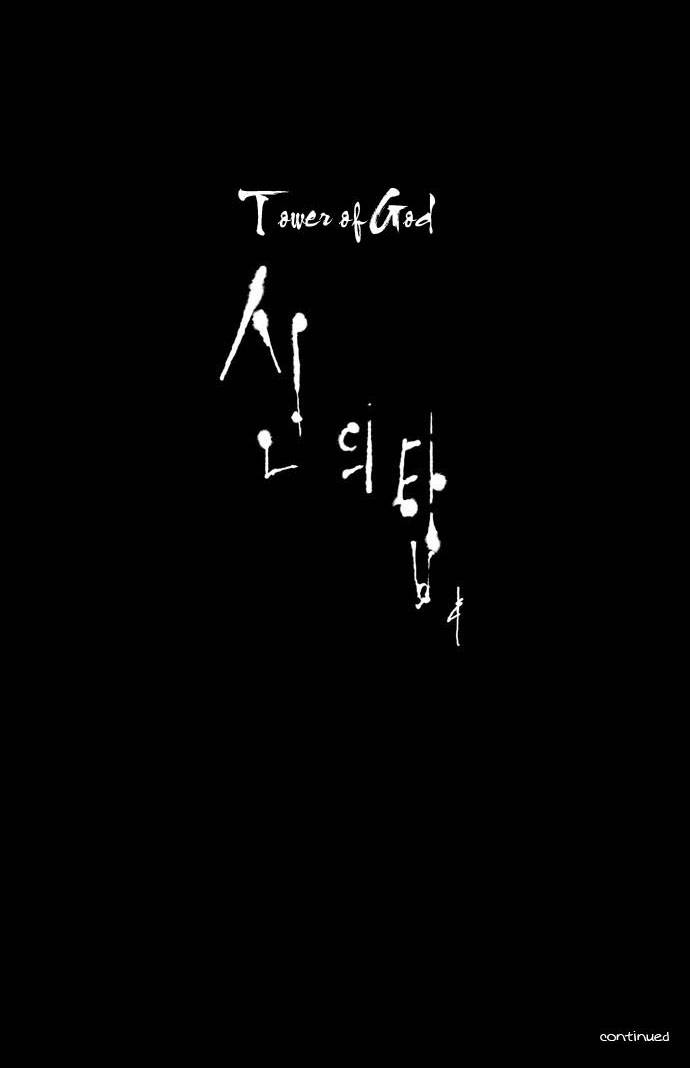 Tower of God
신의탑
continued